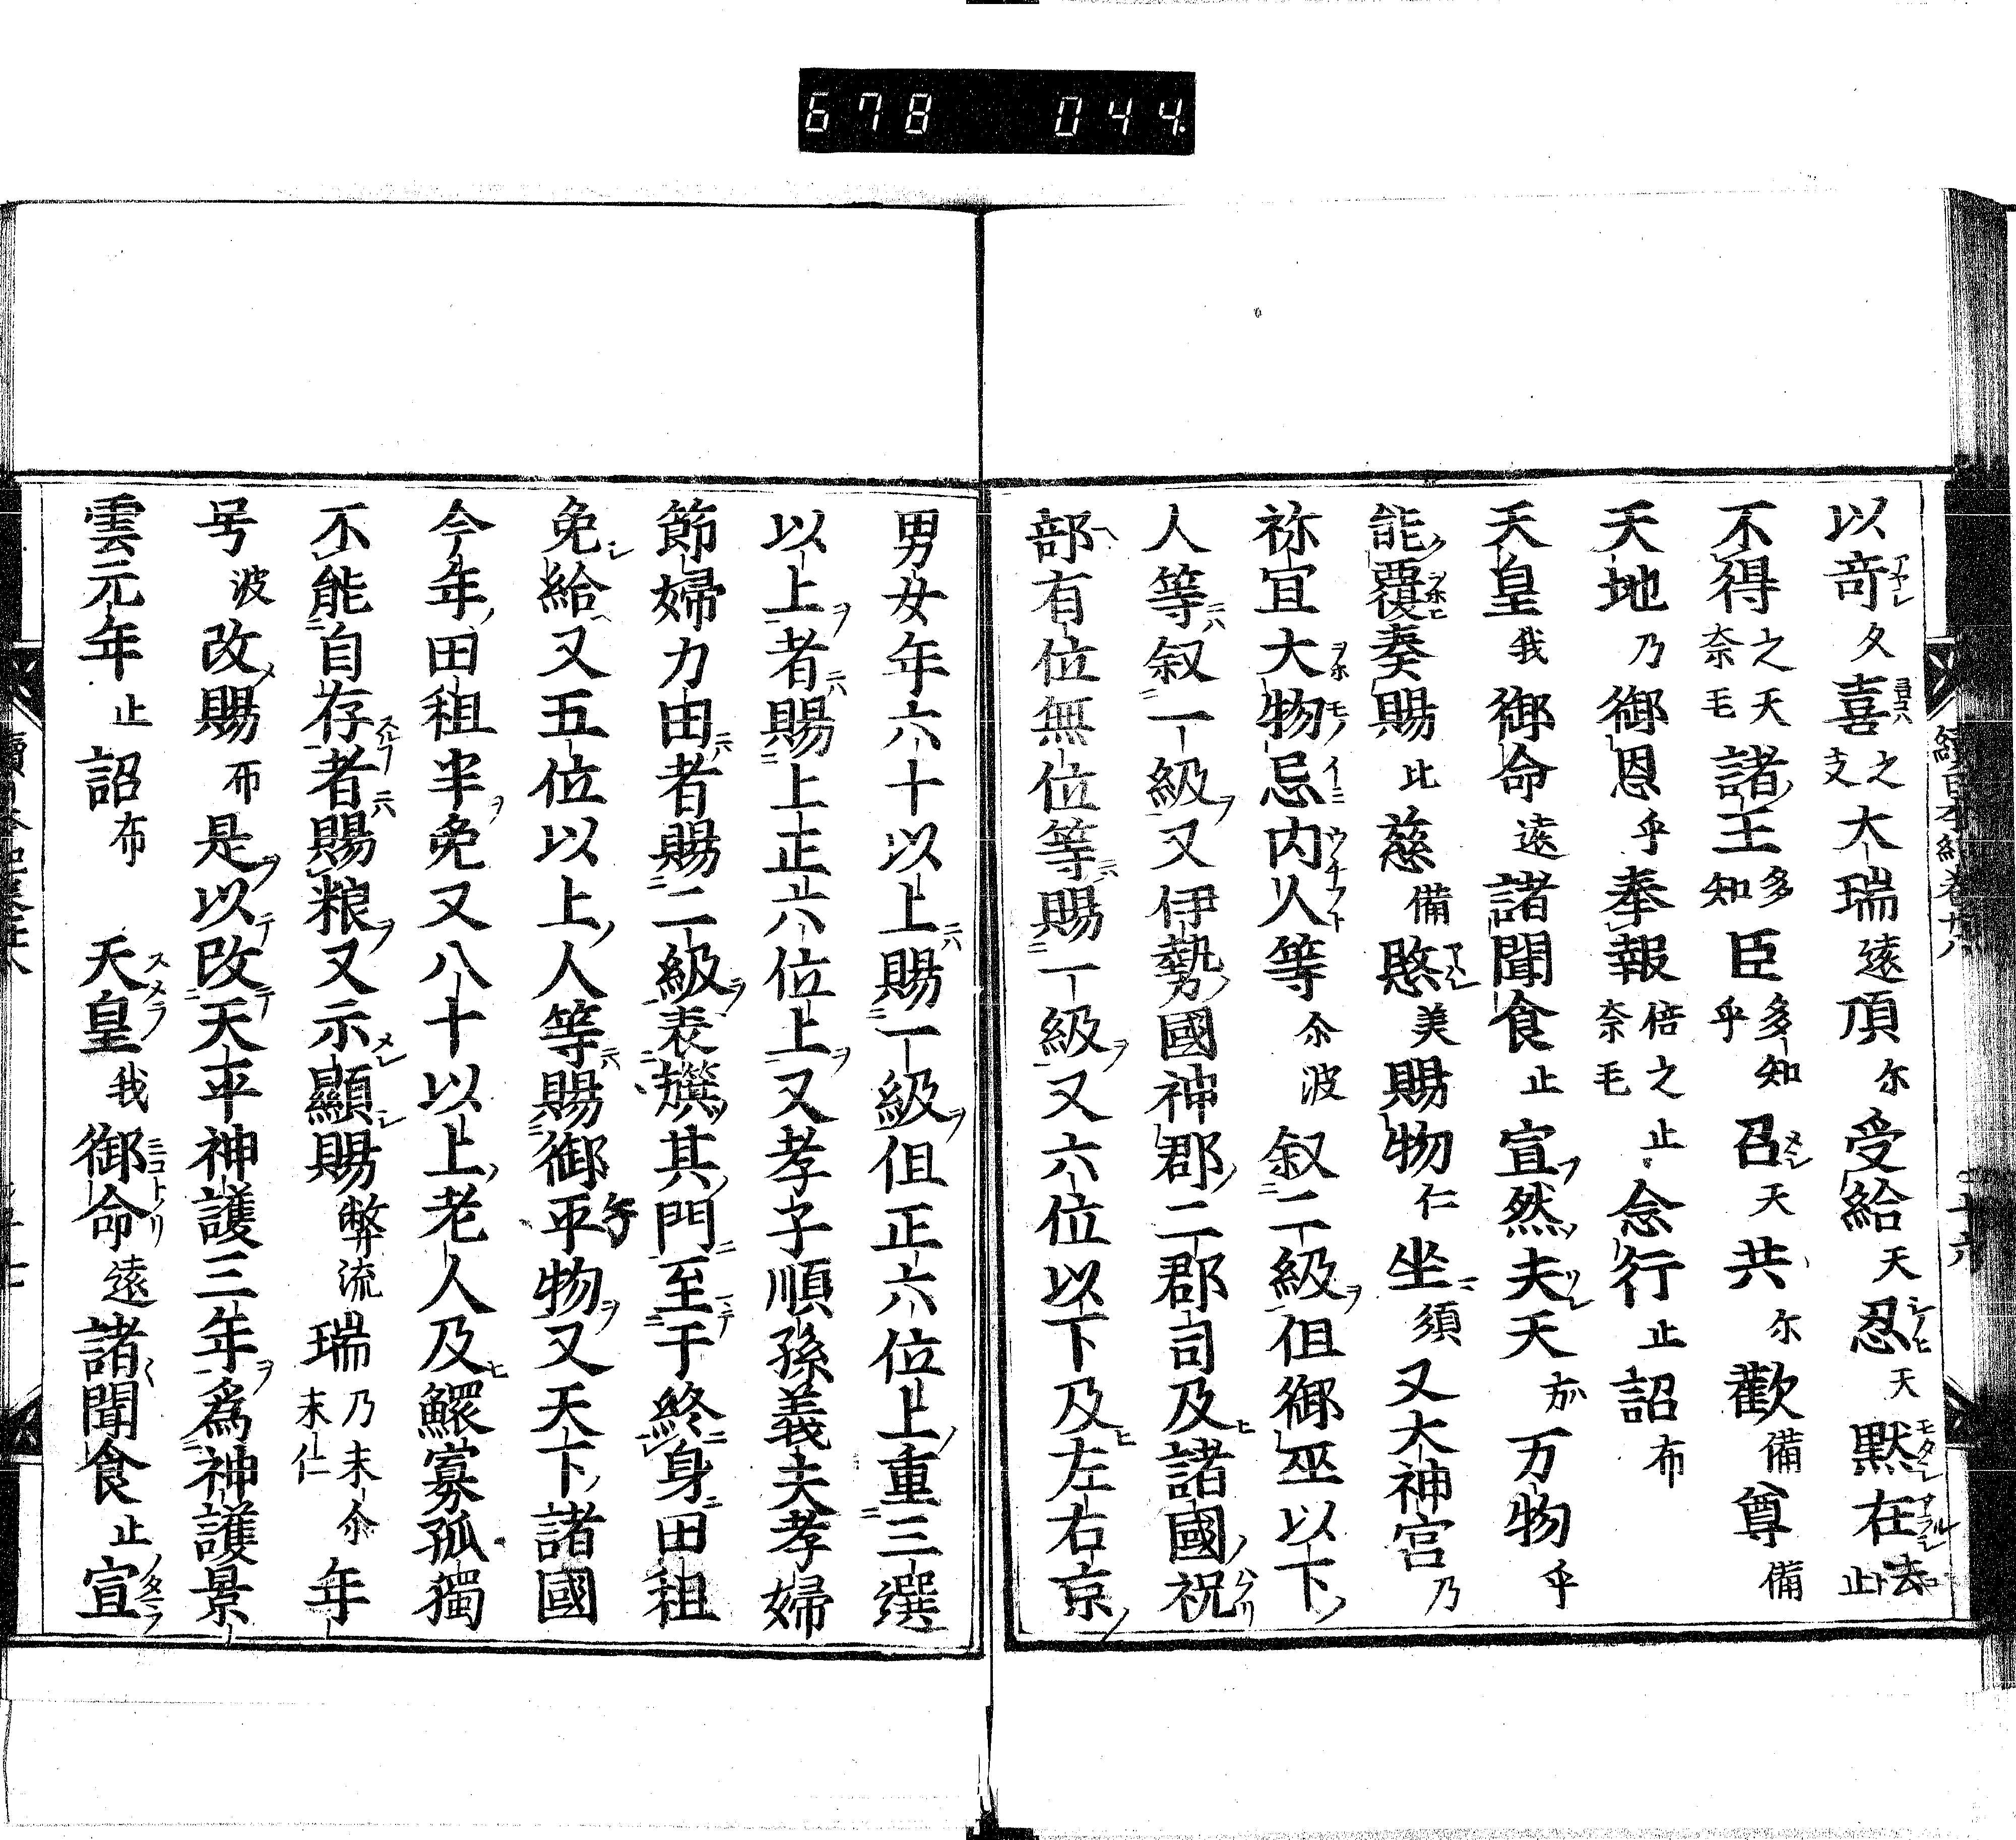 678 044.
以奇久喜之支大瑞遠頂尓受給天忍天黙在去止
不得之天奈毛諸王多知臣多知乎召天共尓歡備尊備
天地乃御恩乎奉報倍之奈毛止念行止詔布
天皇我御命遠諸聞食止宣然夫天方万物乎
能覆奏賜比慈備愍美賜物仁坐須又大神宮乃
祢宜大物忌内人等尒波叙二級但御巫以下
人等叙一級又伊勢國神郡二郡司及諸國祝
部有位無位等賜一級又六位以下及左右京
男女年六十以上賜一級但正六位上重三選
以上者賜上正六位上又孝子順孫義夫孝婦
節婦力田者賜二級表旗其門至于終身田租
免給又五位以上人等賜御平物又天下諸國
今年田租半免又八十以上老人及鰥寡孤獨
不能自存者賜粮又示顯賜弊流瑞乃末尒末仁年
号波改賜布是以改天平神護三年爲神護景
雲元年止詔布 天皇我御命遠諸聞食止宣